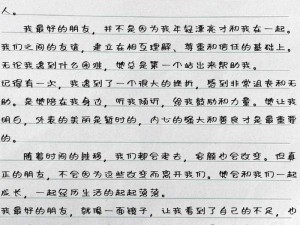 人。
我最好的朋友，并不是因为我年轻漂亮才和我在一起。
我们之间的友谊，建立在相互理解、尊重和信任的基础上。
无论我遇到什么困难，她总是第一个站出来帮助我。
记得有一次，我遇到了一个很大的挫折，感到非常沮丧和无
助。是她陪在我身边，听我倾诉，给我鼓励和力量。她让我
明白，外表的美丽是暂时的，内心的强大和善良才是最重要
的。
随着时间的推移，我们都会老去，容颜也会改变。但真
正的朋友，不会因为这些改变而离开我们。她会和我们一起
成长，一起经历生活的起起落落。
我最好的朋友，就像一面镜子，让我看到了自己的不足，也